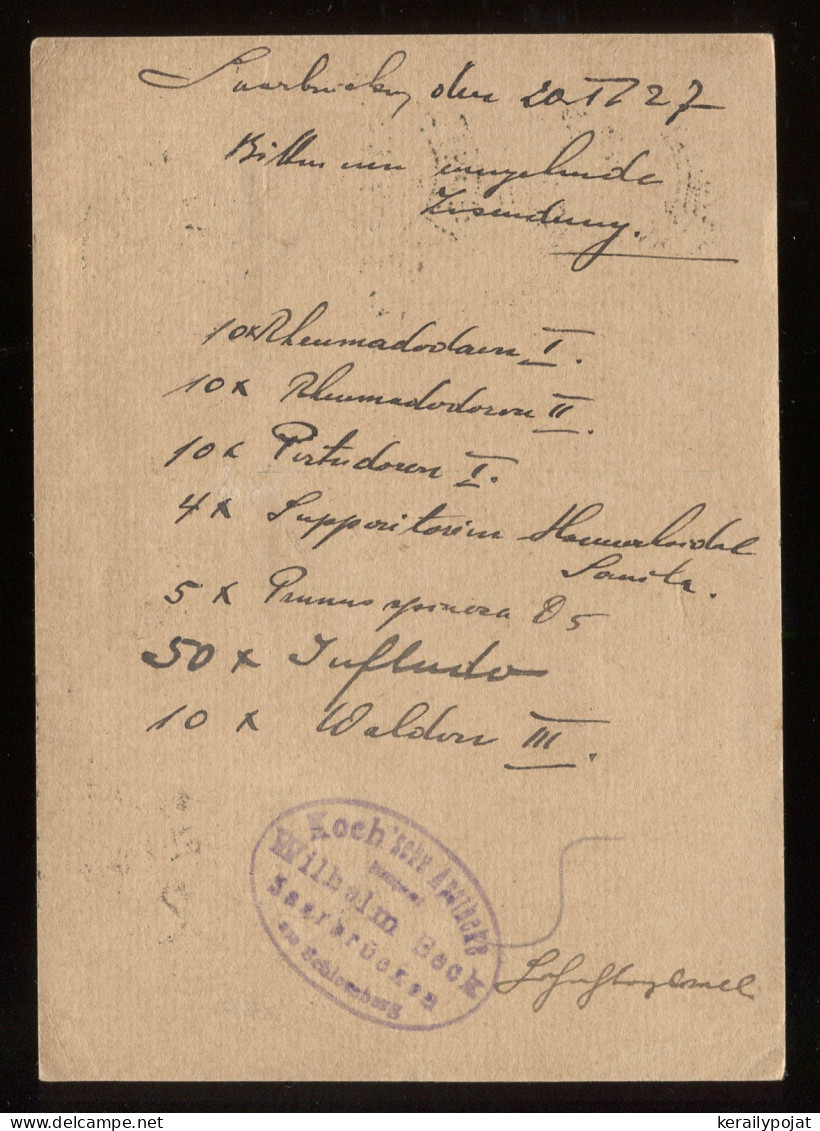 Saarbrücken, den 20. VI 27
Bitten um umgehende
Zusendung.
10 x Rheumadodoron I.
10 x Rheumadodoron II.
10 x Pertudoron I.
4 x Suppositorien Haemorrhoidal
5 x Prunus spinosa D 5
50 x Infludo
10 x Waldon III.
Koch'sche Apotheke
Wilhelm Beck
Saarbrücken
kerailypojat